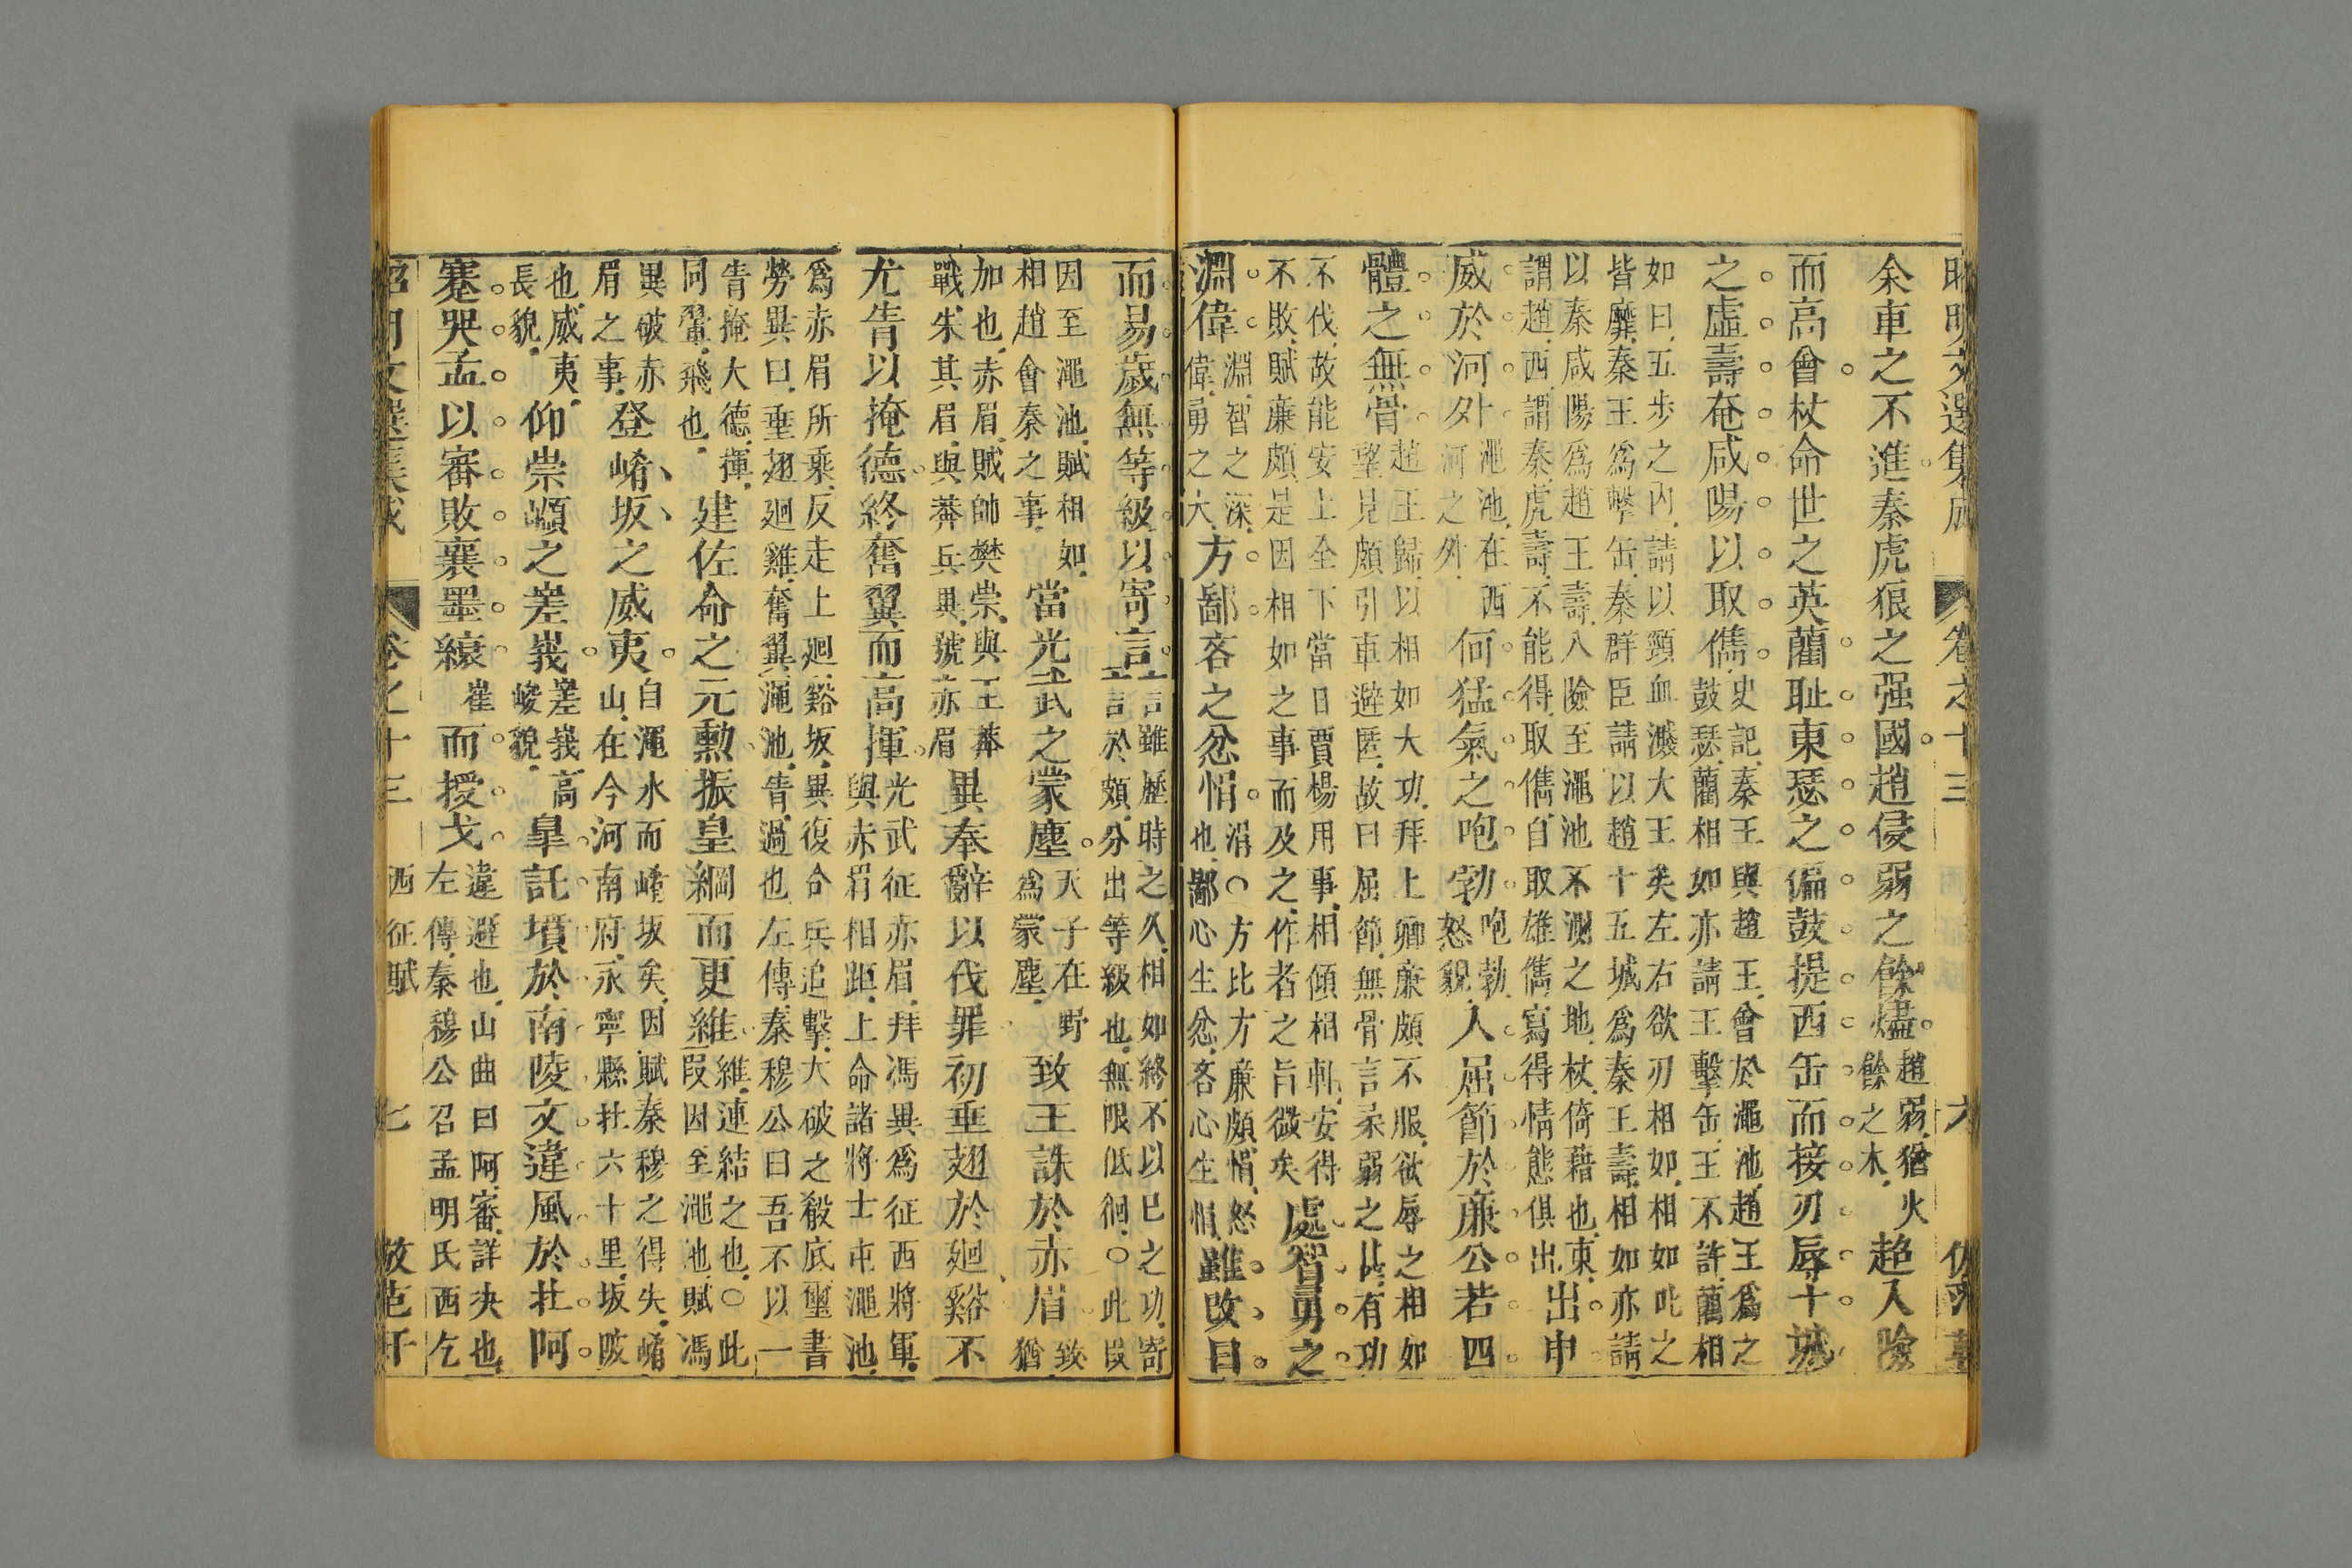 余車之不進秦虎狼之强國趙侵弱之餘燼趙弱猶火餘之木超入險
而高會杖命世之英藺耻東瑟之偏鼓提西缶而接刃辱十城
之虛壽奄咸陽以取儁史記秦王與趙王會於澠池趙王爲之鼓瑟藺相如亦請王擊缶王不許藺相
如曰五步之內請以頸血濺大王矣左右欲刃相如相如叱之皆靡秦王爲擊缶秦群臣請以趙十五城爲秦王壽相如亦請
以秦咸陽爲趙王壽入險至澠池不測之地杖倚藉也東謂趙西謂秦虛壽不能得取儁自取雄儁寫得情態俱出出申
威於河外澠池在西河之外何猛氣之咆勃咆勃怒貌入屈節於廉公若四
體之無骨趙王歸以相如大功拜上卿廉頗不服欲辱之相如望見頗引車避匿故曰屈節無骨言柔弱之甚有功
不伐故能安上全下當日賈楊用事相傾相軋安得不敗賦廉頗是因相如之事而及之作者之旨微矣處智勇之
淵偉淵智之深偉勇之大方鄙吝之忿悁涓也〇方比方廉頗悁怒鄙心生忿吝心生悁雖改日
而易歲無等級以寄言言雖歷時之久相如終不以已之功寄言於頗分出等級也無限低徊〇此段
因至澠池賦相如相趙會秦之事當光武之蒙塵天子在野爲蒙塵致王誅於赤眉致猶
加也赤眉賊帥樊崇與王莽戰朱其眉與莽兵異號赤眉異奉辭以伐罪初垂翅於廻谿不
尤眚以掩德終奮翼而高揮光武征赤眉拜馮異爲征西將軍與赤眉相距上命諸將士屯澠池
爲赤眉所乘反走上廻谿坂異復合兵追擊大破之殽底璽書勞異曰垂翅廻雞奮翼澠池眚過也左傳秦穆公曰吾不以一
眚掩大德揮同翬飛也建佐命之元勲振皇綱而更維維連結之也〇此段因至澠池賦馮
異破赤眉之事登崤坂之威夷自澠水而崤坂矣因賦秦穆之得失崤山在今河南府永寧縣北六十里坂陂
也威夷長貌仰崇嶺之嵳峩嵳峩高峻貌臯託墳於南陵文違風於北阿
蹇哭孟以審敗襄墨縗崔而授戈違避也山曲曰阿審詳決也左傳秦穆公召孟明氏西乞
卷之十三 西征賦 七